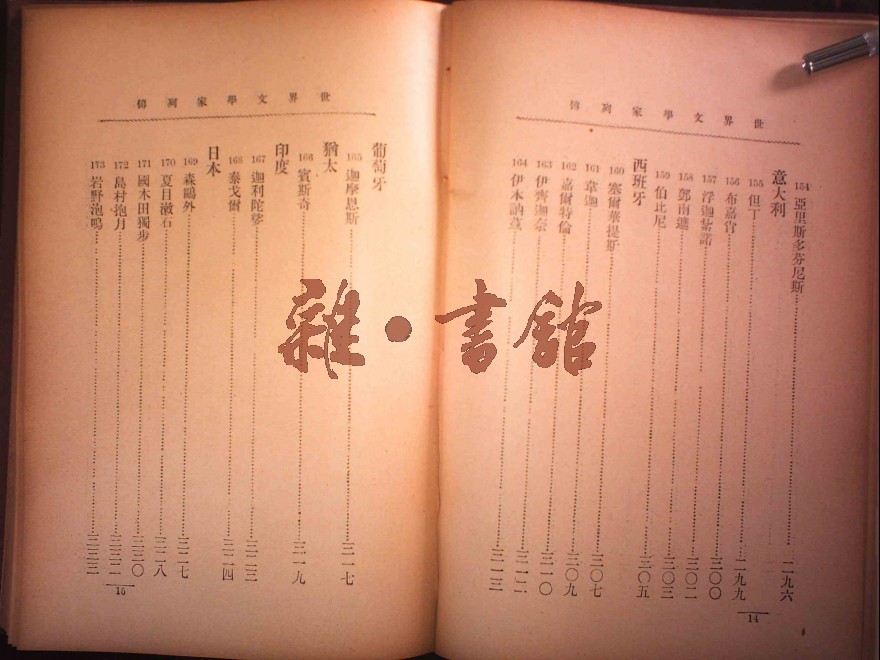 世界文學家列傳
154 亞里斯多芬尼斯……二九六
意大利
155 但丁……二九九
156 布嘉肖……三〇〇
157 浮迦紮諾……三〇二
158 鄧南遮……三〇三
159 伯比尼……三〇五
西班牙
160 塞爾華提斯……三〇七
161 韋迦……三〇九
162 嘉爾特倫……三一〇
163 伊齊迦萊……三一二
164 伊本訥茲……三一三
14
世界文學家列傳
葡萄牙
165 迦摩恩斯……三一七
猶太
166 賓斯奇……三一九
印度
167 迦利陀娑……三二三
168 泰戈爾……三二四
日本
169 森鷗外……三二七
170 夏目漱石……三二八
171 國木田獨步……三三〇
172 島村抱月……三三二
173 岩野泡鳴……三三三
雜•書館